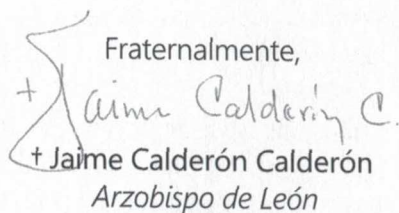 Fraternalmente,
+ Jaime Calderón C.
† Jaime Calderón Calderón
Arzobispo de León